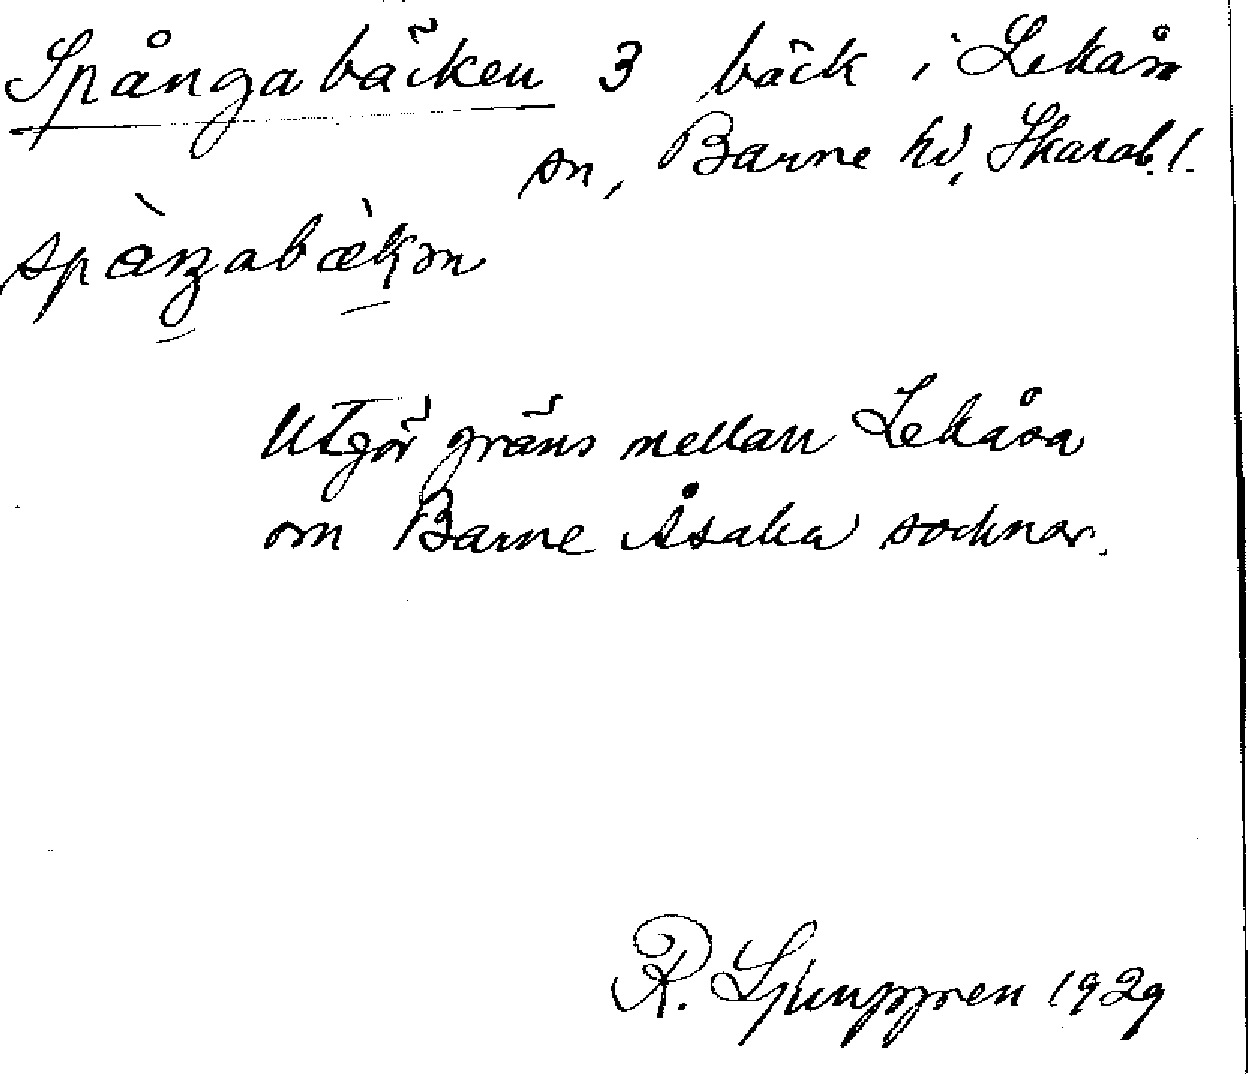 Spångabäcken 3 bäck i Lekåsa
sn, Barne hd, Skarab. l.
Utgör gräns mellan Lekåsa
om Barne Åsaka socknar.
R. Ljunggren 1929